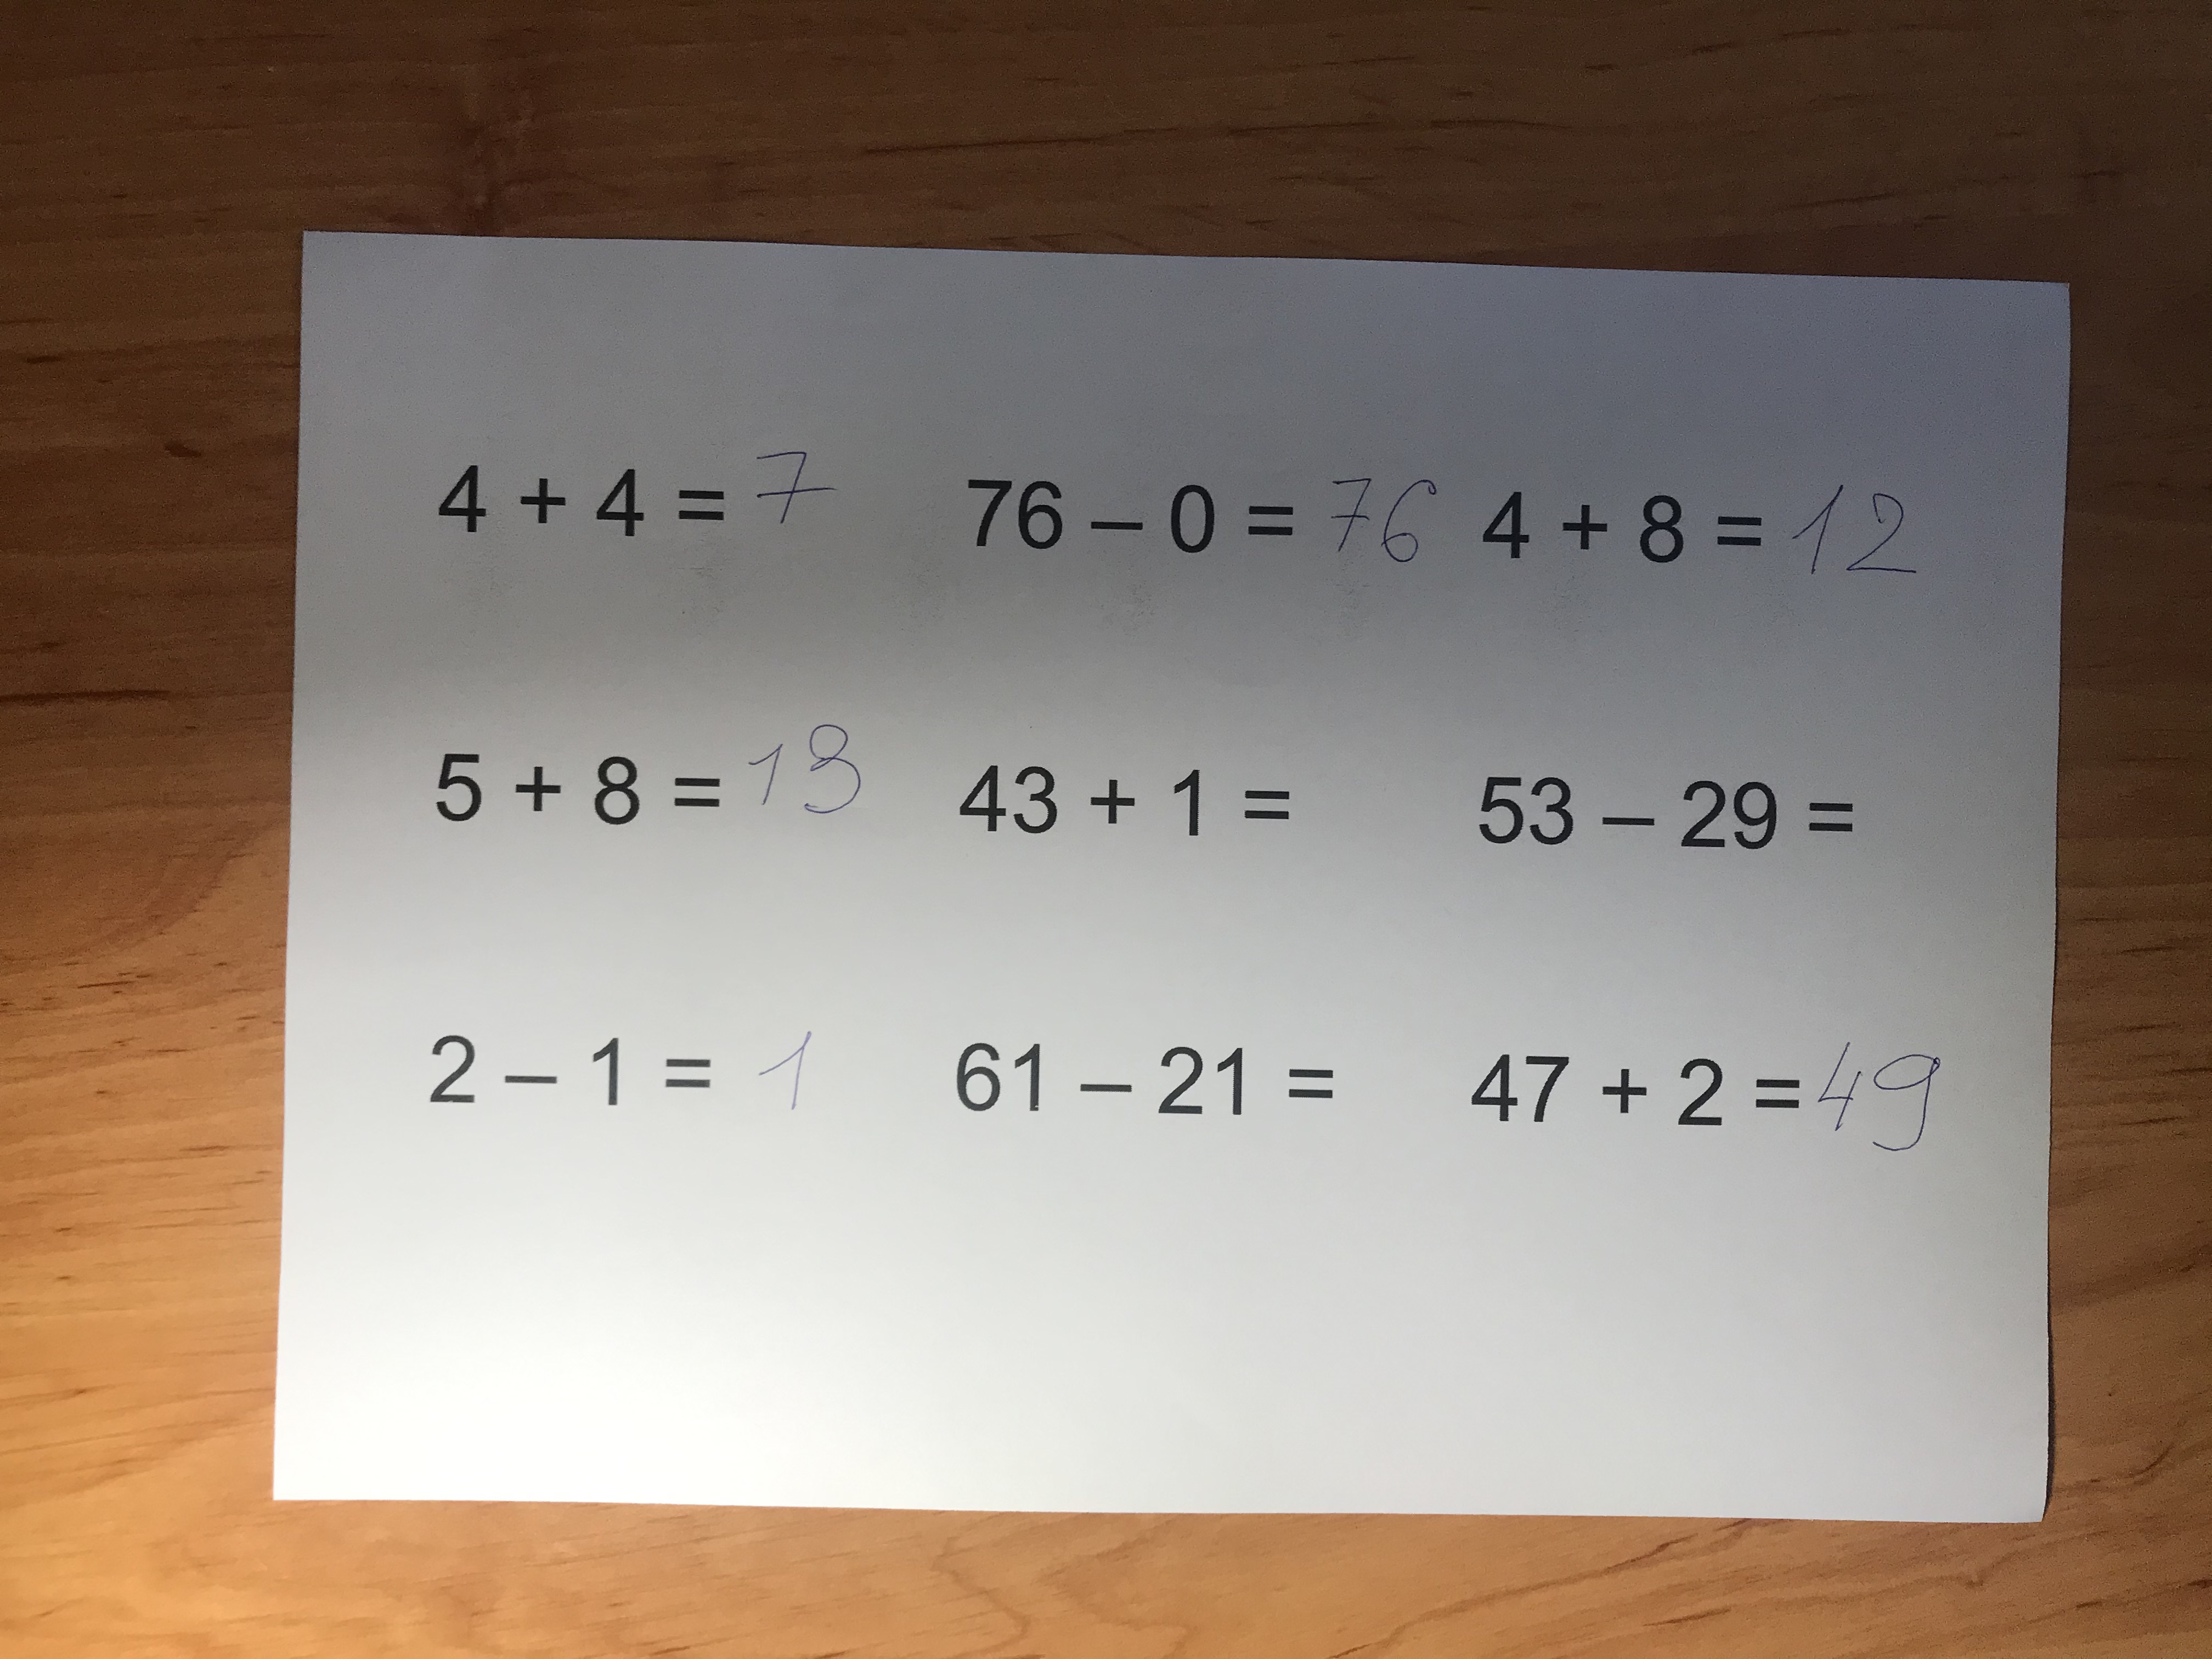 4 + 4 = 7 76 – 0 = 76 4 + 8 = 12
5 + 8 = 13 43 + 1 = 53 – 29 =
2 – 1 = 1 61 – 21 = 47 + 2 = 49